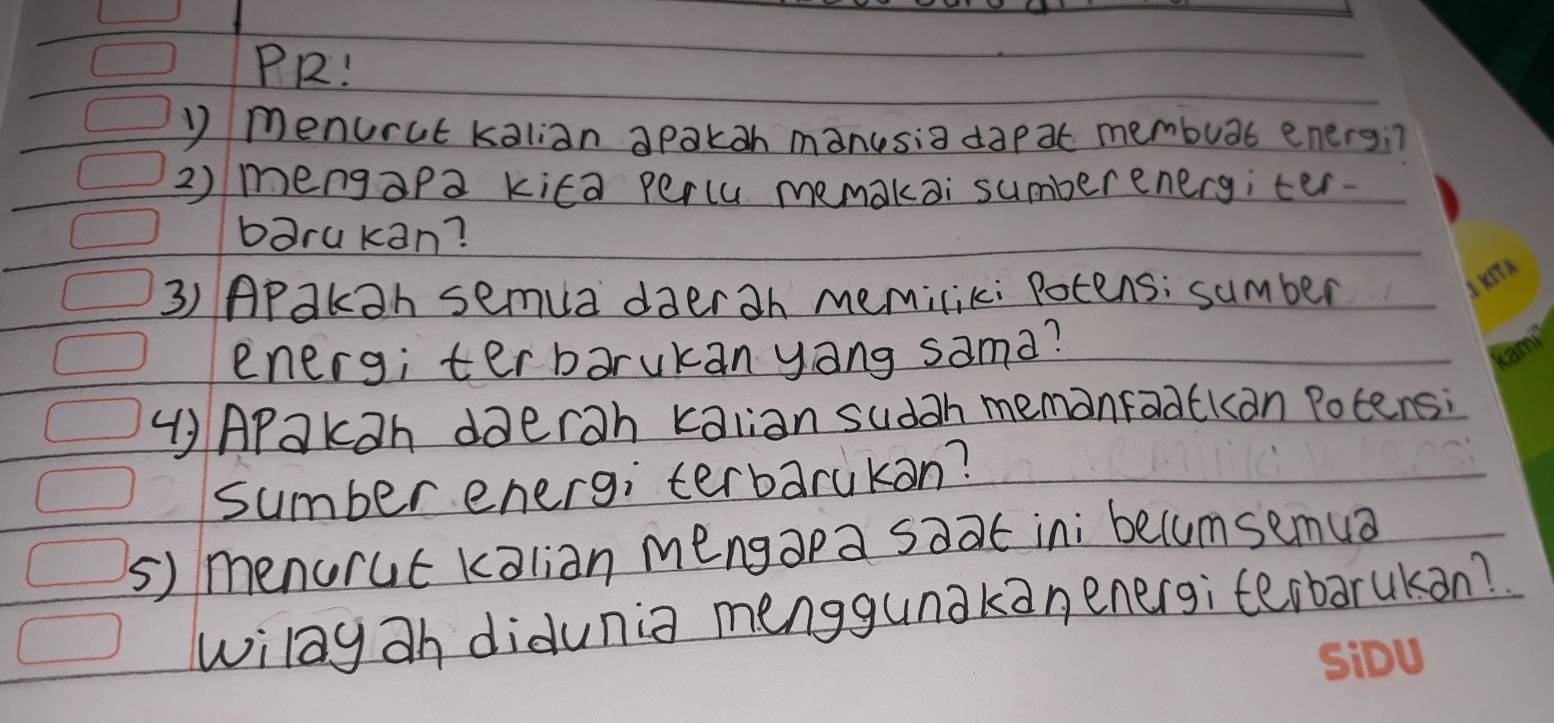 PR!
1) Menurut kalian apakah manusia dapat membuat energi?
2) mengapa kita perlu memakai sumber energi ter-
barukan?
3) Apakah semua daerah memiliki potensi sumber
energi terbarukan yang sama?
4) Apakah daerah kalian sudah memanfaatkan potensi
sumber energi terbarukan?
5) menurut kalian mengapa saat ini belum semua
wilayah didunia menggunakan energi terbarukan?
SiDU
KITA
kami